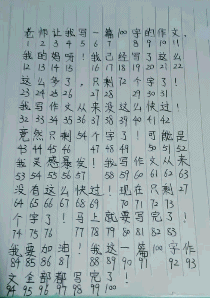 老师让我写一篇100字的作文.
1 2 3 4 5 6 7 8 9 10 11
我的妈呀!我已经写了这么
12 13 14 15 16 17 18 19 20 21 22
这么多了.只剩72个字了!
23 24 25 26 27 28 29 30 31
我写作文从来没这么快过!
32 33 34 35 36 37 38 39 40 41 42
竟然只剩54个字了!可能是
43 44 45 46 47 48 49 50 51 52
我灵感暴发!我写作文从来
53 54 55 56 57 58 59 60 61 62 63
没有这么快过!现在只剩27
64 65 66 67 68 69 70 71 72 73
个字了!马上就要写完了!
74 75 76 77 78 79 80 81 82 83
我要加油!我这一篇100字作
84 85 86 87 88 89 90 91 92 93
文全部都写完了!
94 95 96 97 98 99 100